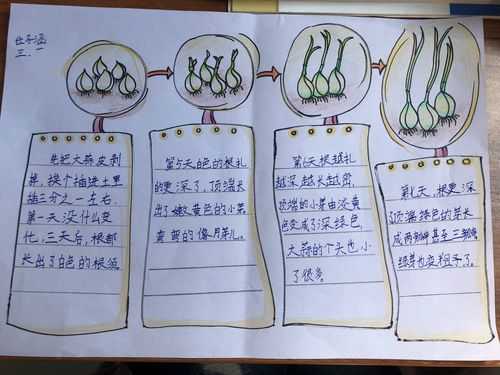 三、一
先把大蒜皮剥
掉,挨个插进土里
插三分之一左右,
第一天没什么变
化,三天后,根部
长出了白色的根须
第5天白色的根扎
的更深了,顶端长
出了嫩黄色的小芽
弯弯的像月牙儿。
第6天根越扎
越深越长越密,
顶端的小芽由淡黄
色变成了深绿色,
大蒜的个头也小
了很多。
第七天,根更深
了顶端绿色的芽长
成两瓣甚至三瓣
绿芽也变粗了。